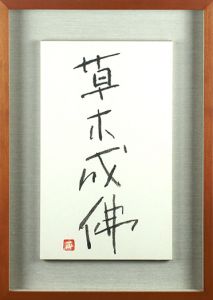 草木成佛